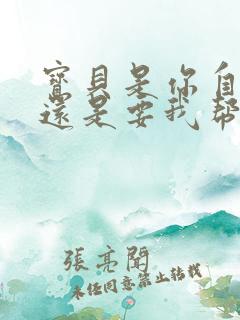 寶貝是你自
還是要我幫
張亮聞
未任同意禁止转載